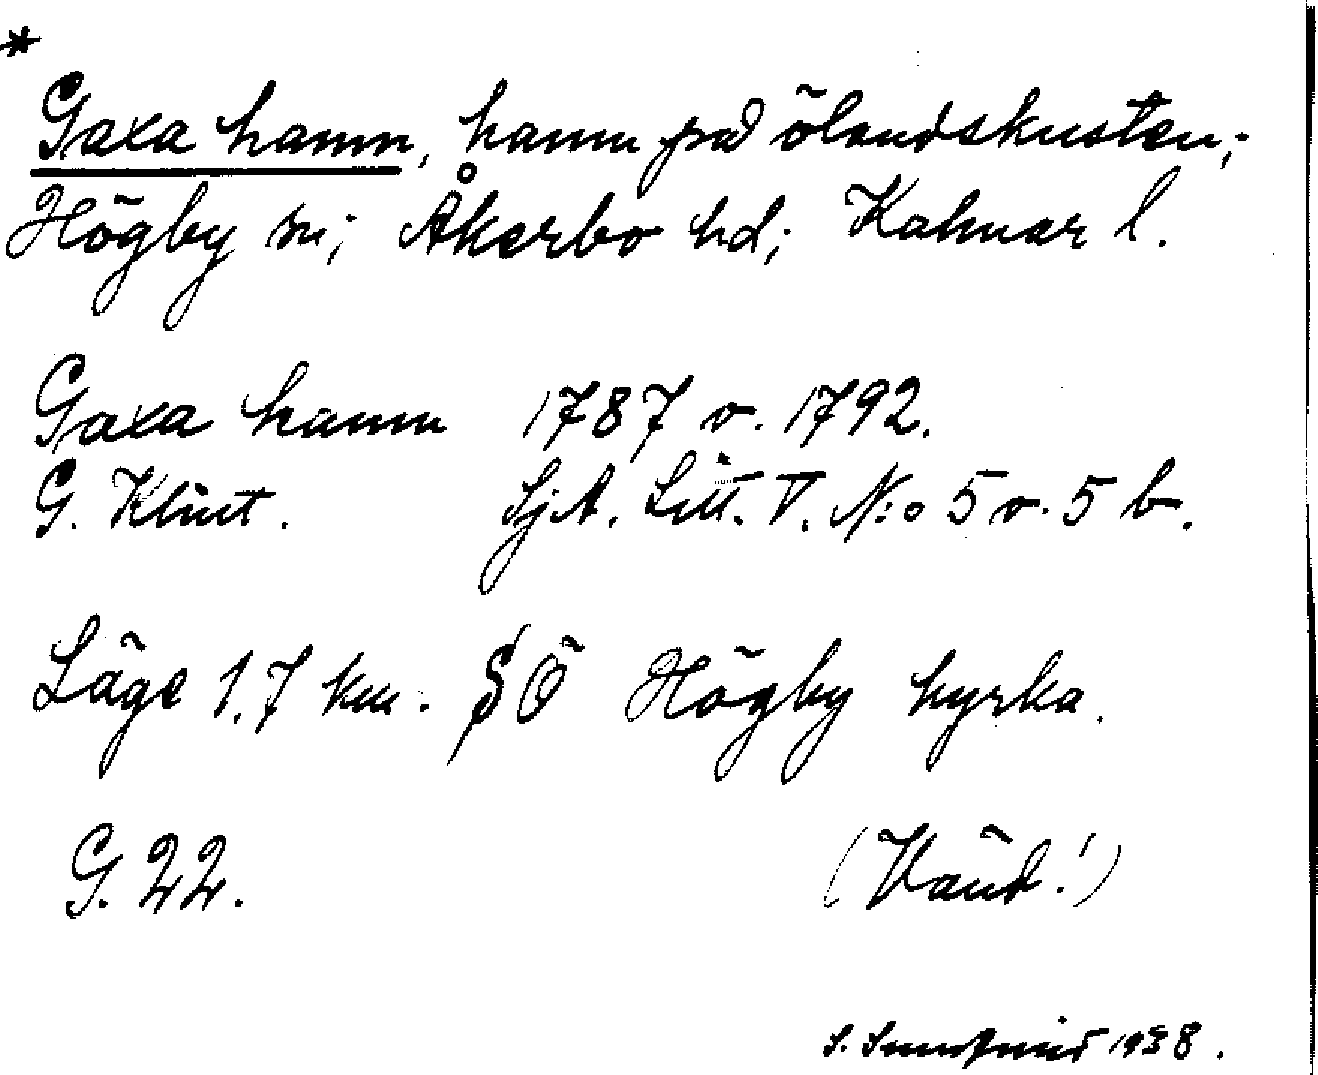 *
Gaxa hamn, hamn på ölandskusten;
Högby sn; Åkerbo hd; Kalmar l.
Gaxa hamn 1787 o. 1792.
G. Klint. SjA. Litt. V. N:o 5 o. 5 b.
Läge 1,7 km. SÖ Högby kyrka.
G. 22. (Vänd!)
S. 1938.